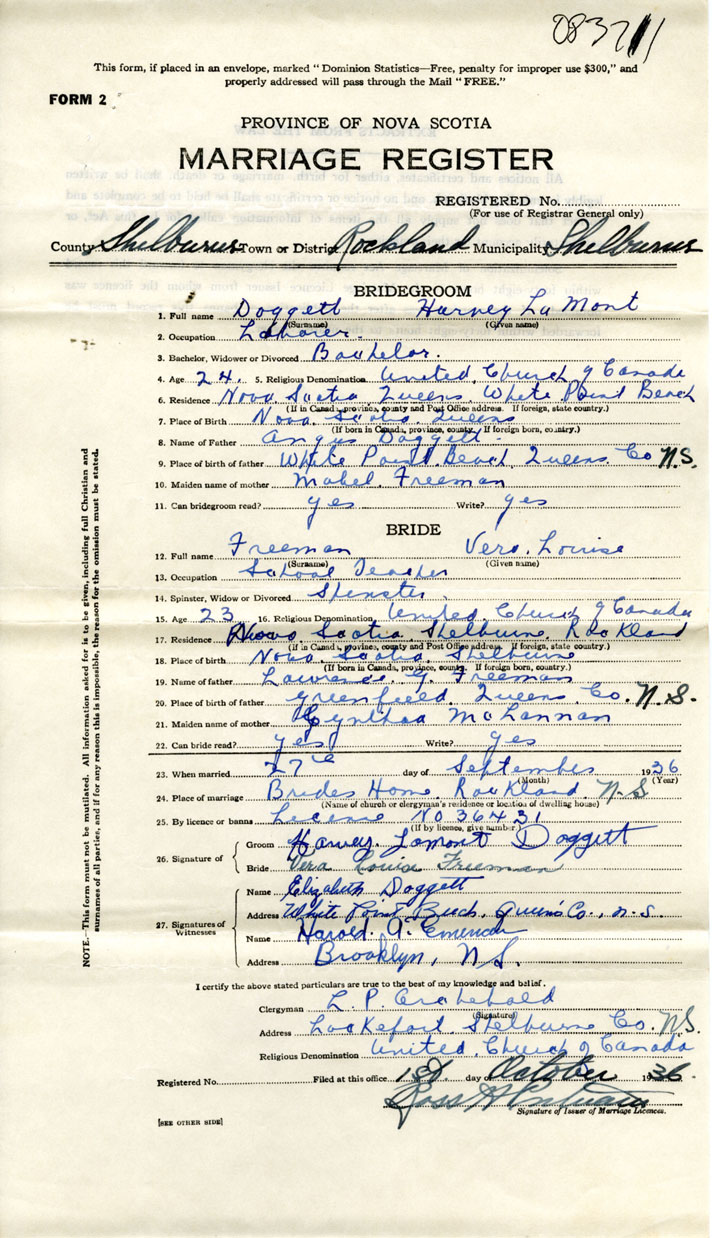 This form, if placed in an envelope, marked "Dominion Statistics—Free, penalty for improper use $300," and
properly addressed will pass through the Mail "FREE."
FORM 2
PROVINCE OF NOVA SCOTIA
MARRIAGE REGISTER
REGISTERED No.
(For use of Registrar General only)
County Shelburne Town or District Rockland Municipality Shelburne
BRIDEGROOM
1. Full name Doggett Harvey La Mont
(Surname) (Given name)
2. Occupation Laborer.
3. Bachelor, Widower or Divorced Bachelor.
4. Age 24. 5. Religious Denomination United Church of Canada
6. Residence Nova Scotia Queens. White Point Beach
(If in Canada, province, county and Post Office address. If foreign, state country.)
7. Place of Birth Nova Scotia Queens
(If born in Canada, province, county. If foreign born, country.)
8. Name of Father Angus Doggett.
9. Place of birth of father White Point Beach Queens Co N.S.
10. Maiden name of mother Mabel Freeman
11. Can bridegroom read? yes Write? yes
BRIDE
12. Full name Freeman Vera Louise
(Surname) (Given name)
13. Occupation School Teacher
14. Spinster, Widow or Divorced Spinster
15. Age 23 16. Religious Denomination United Church of Canada
17. Residence Nova Scotia Shelburne Rockland
(If in Canada, province, county and Post Office address. If foreign, state country.)
18. Place of birth Nova Scotia Shelburne
(If born in Canada, province, county. If foreign born, country.)
19. Name of father Lawrence G. Freeman
20. Place of birth of father Greenfield Queens Co. N.S.
21. Maiden name of mother Cynthia McLannan
22. Can bride read? yes Write? yes
23. When married 27th day of September 1936
(Month) (Year)
24. Place of marriage Brides Home Rockland N-S
(Name of church or clergyman's residence or location of dwelling house)
25. By licence or banns License No 36431
(If by licence, give number.)
26. Signature of
Groom Harvey Lamont Doggett
Bride Vera Louise Freeman
27. Signatures of Witnesses
Name Elizabeth Doggett
Address White Point Beach, Queen's Co., N.S.
Name Harold A.
Address Brooklyn, N.S.
I certify the above stated particulars are true to the best of my knowledge and belief.
Clergyman L. P. Archibald
(Signature)
Address Lockeport Shelburne Co. N.S.
Religious Denomination United Church of Canada
Registered No. Filed at this office 1st day of October 1936
Ross H
Signature of Issuer of Marriage Licences.
[SEE OTHER SIDE]
NOTE.—This form must not be mutilated. All information asked for is to be given, including full Christian and
surnames of all parties, and if for any reason this is impossible, the reason for the omission must be stated.